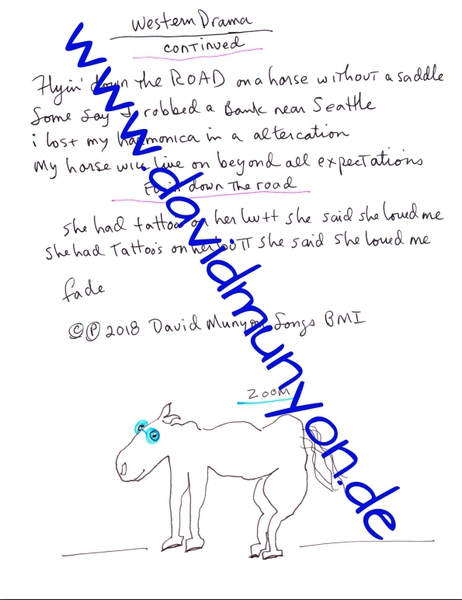 Western Drama
continued
Flyin' down the ROAD on a horse without a saddle
Some say I robbed a Bank near Seattle
i lost my harmonica in a altercation
My horse will live on beyond all expectations
down The road
she had tattoo on her butt she said she loved me
she had Tattoo's on her buTT she said She loved me
fade
© ℗ 2018 David Munyon Songs BMI
ZOOM
www.davidmunyon.de